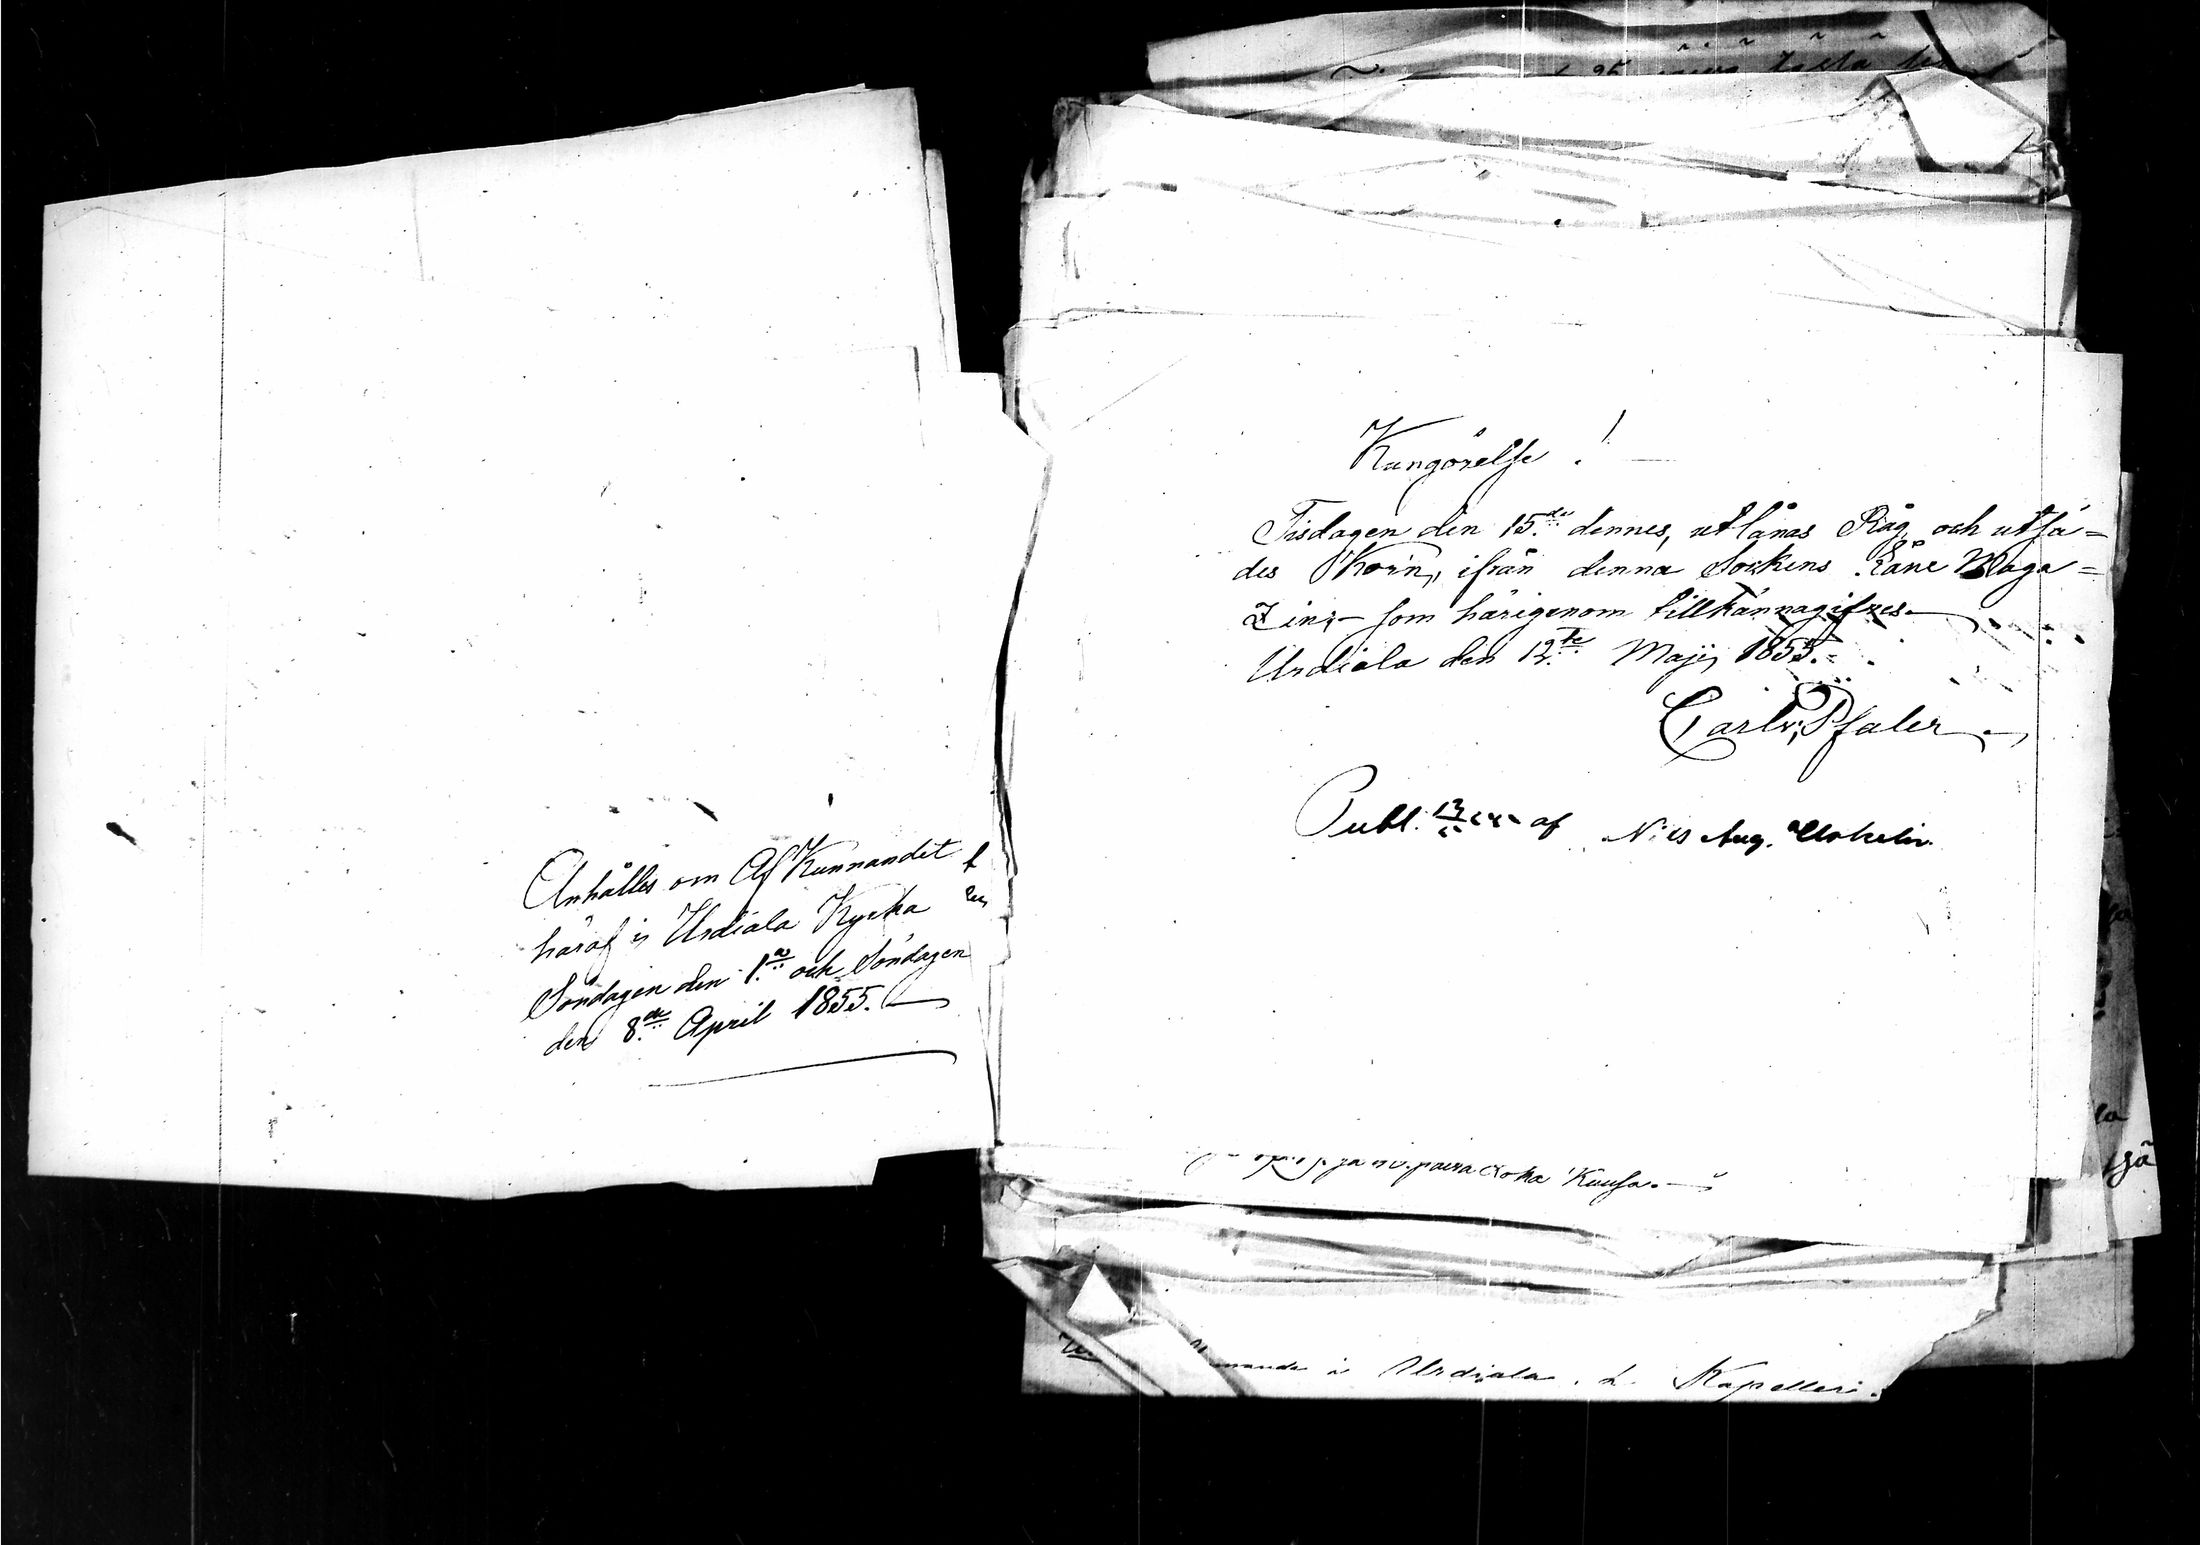 Anhålles om Af Kunnandet
häraf i Urdiala Kyrka
Söndagen den 1.a och Söndagen
den 8.de April 1855.
Kungörelse!
Tisdagen den 15.de dennes, utlånas Råg, och utså=
des Korn, ifrån denna Sockens Låne Maga=
Zin; som härigenom tillkännagifves.
Urdiala den 12.te Maji, 1855.
Carl v. Pfaler
Publ. 13 af Nils Aug.
päivä Kuusa.
i Urdiala Kapelleri